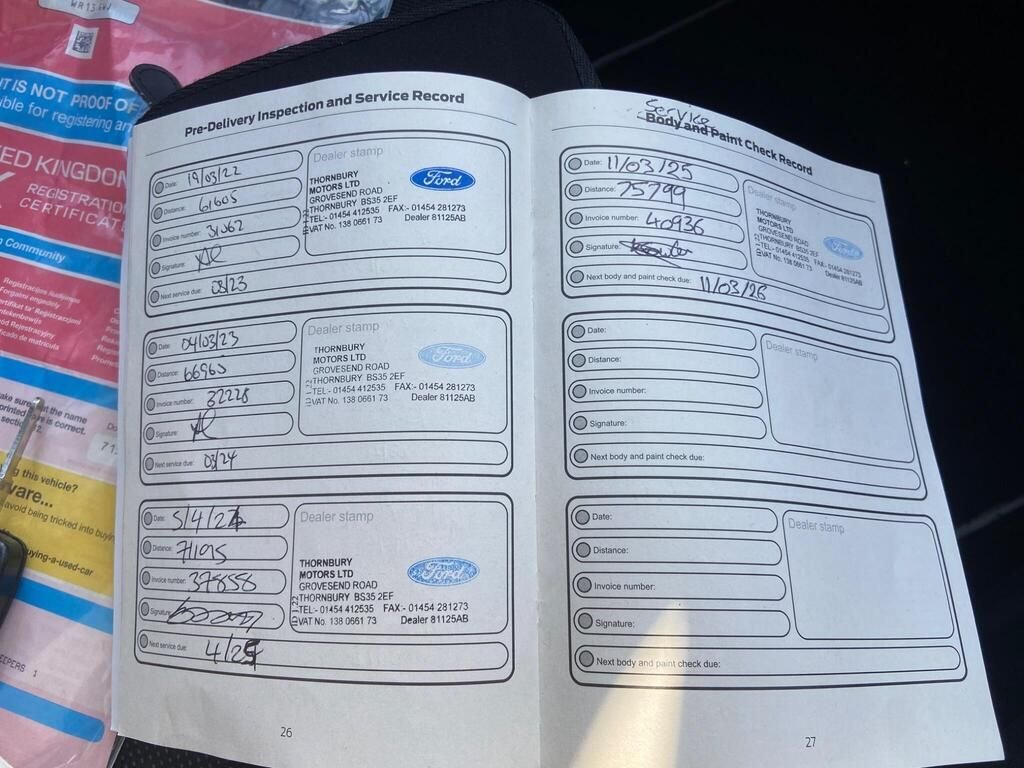 WR13
IT IS NOT PROOF OF
ible for registering an
ED KINGDOM
REGISTRATION
CERTIFICATE
Community
Registracijos liudijimas
Forgalmi engedély
ertifikat ta' Reġistrazzjoni
entekenbewijs
ód Rejestracyjny
ficado de matrícula
ake sure that the name
printed
is correct.
section
71
g this vehicle?
ware...
avoid being tricked into buyin
uying-a-used-car
EEPERS 1
Pre-Delivery Inspection and Service Record
Date: 19/03/22
Distance: 61605
Invoice number: 31062
Signature:
Next service due: 03/23
Dealer stamp
THORNBURY
MOTORS LTD
GROVESEND ROAD
THORNBURY BS35 2EF
TEL:- 01454 412535 FAX:- 01454 281273
VAT No. 138 0661 73 Dealer 81125AB
Ford
Date: 04/03/23
Distance: 66965
Invoice number: 32228
Signature:
Next service due: 03/24
Dealer stamp
THORNBURY
MOTORS LTD
GROVESEND ROAD
THORNBURY BS35 2EF
TEL:- 01454 412535 FAX:- 01454 281273
VAT No. 138 0661 73 Dealer 81125AB
Ford
Date: 5/4/24
Distance: 71095
Invoice number: 378558
Signature:
Next service due: 4/25
Dealer stamp
THORNBURY
MOTORS LTD
GROVESEND ROAD
THORNBURY BS35 2EF
TEL:- 01454 412535 FAX:- 01454 281273
VAT No. 138 0661 73 Dealer 81125AB
Ford
26
Service
Body and Paint Check Record
Date: 11/03/25
Distance: 75799
Invoice number: 40936
Signature:
Next body and paint check due: 11/03/26
Dealer stamp
THORNBURY
MOTORS LTD
GROVESEND ROAD
THORNBURY BS35 2EF
TEL:- 01454 412535 FAX:- 01454 281273
VAT No. 138 0661 73 Dealer 81125AB
Ford
Date:
Distance:
Invoice number:
Signature:
Next body and paint check due:
Dealer stamp
Date:
Distance:
Invoice number:
Signature:
Next body and paint check due:
Dealer stamp
27